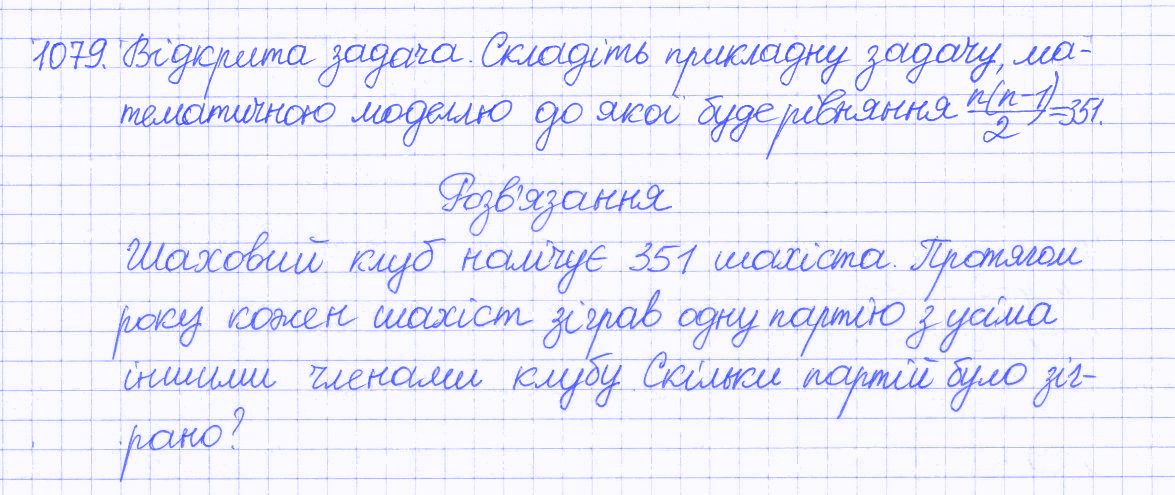 1079. Відкрита задача. Складіть прикладну задачу, ма-
тематичною моделлю до якої буде рівняння n(n-1)/2=351.
Розв'язання
Шаховий клуб налічує 351 шахіста. Протягом
року кожен шахіст зіграв одну партію з усіма
іншими членами клубу Скільки партій було зіг-
рано?